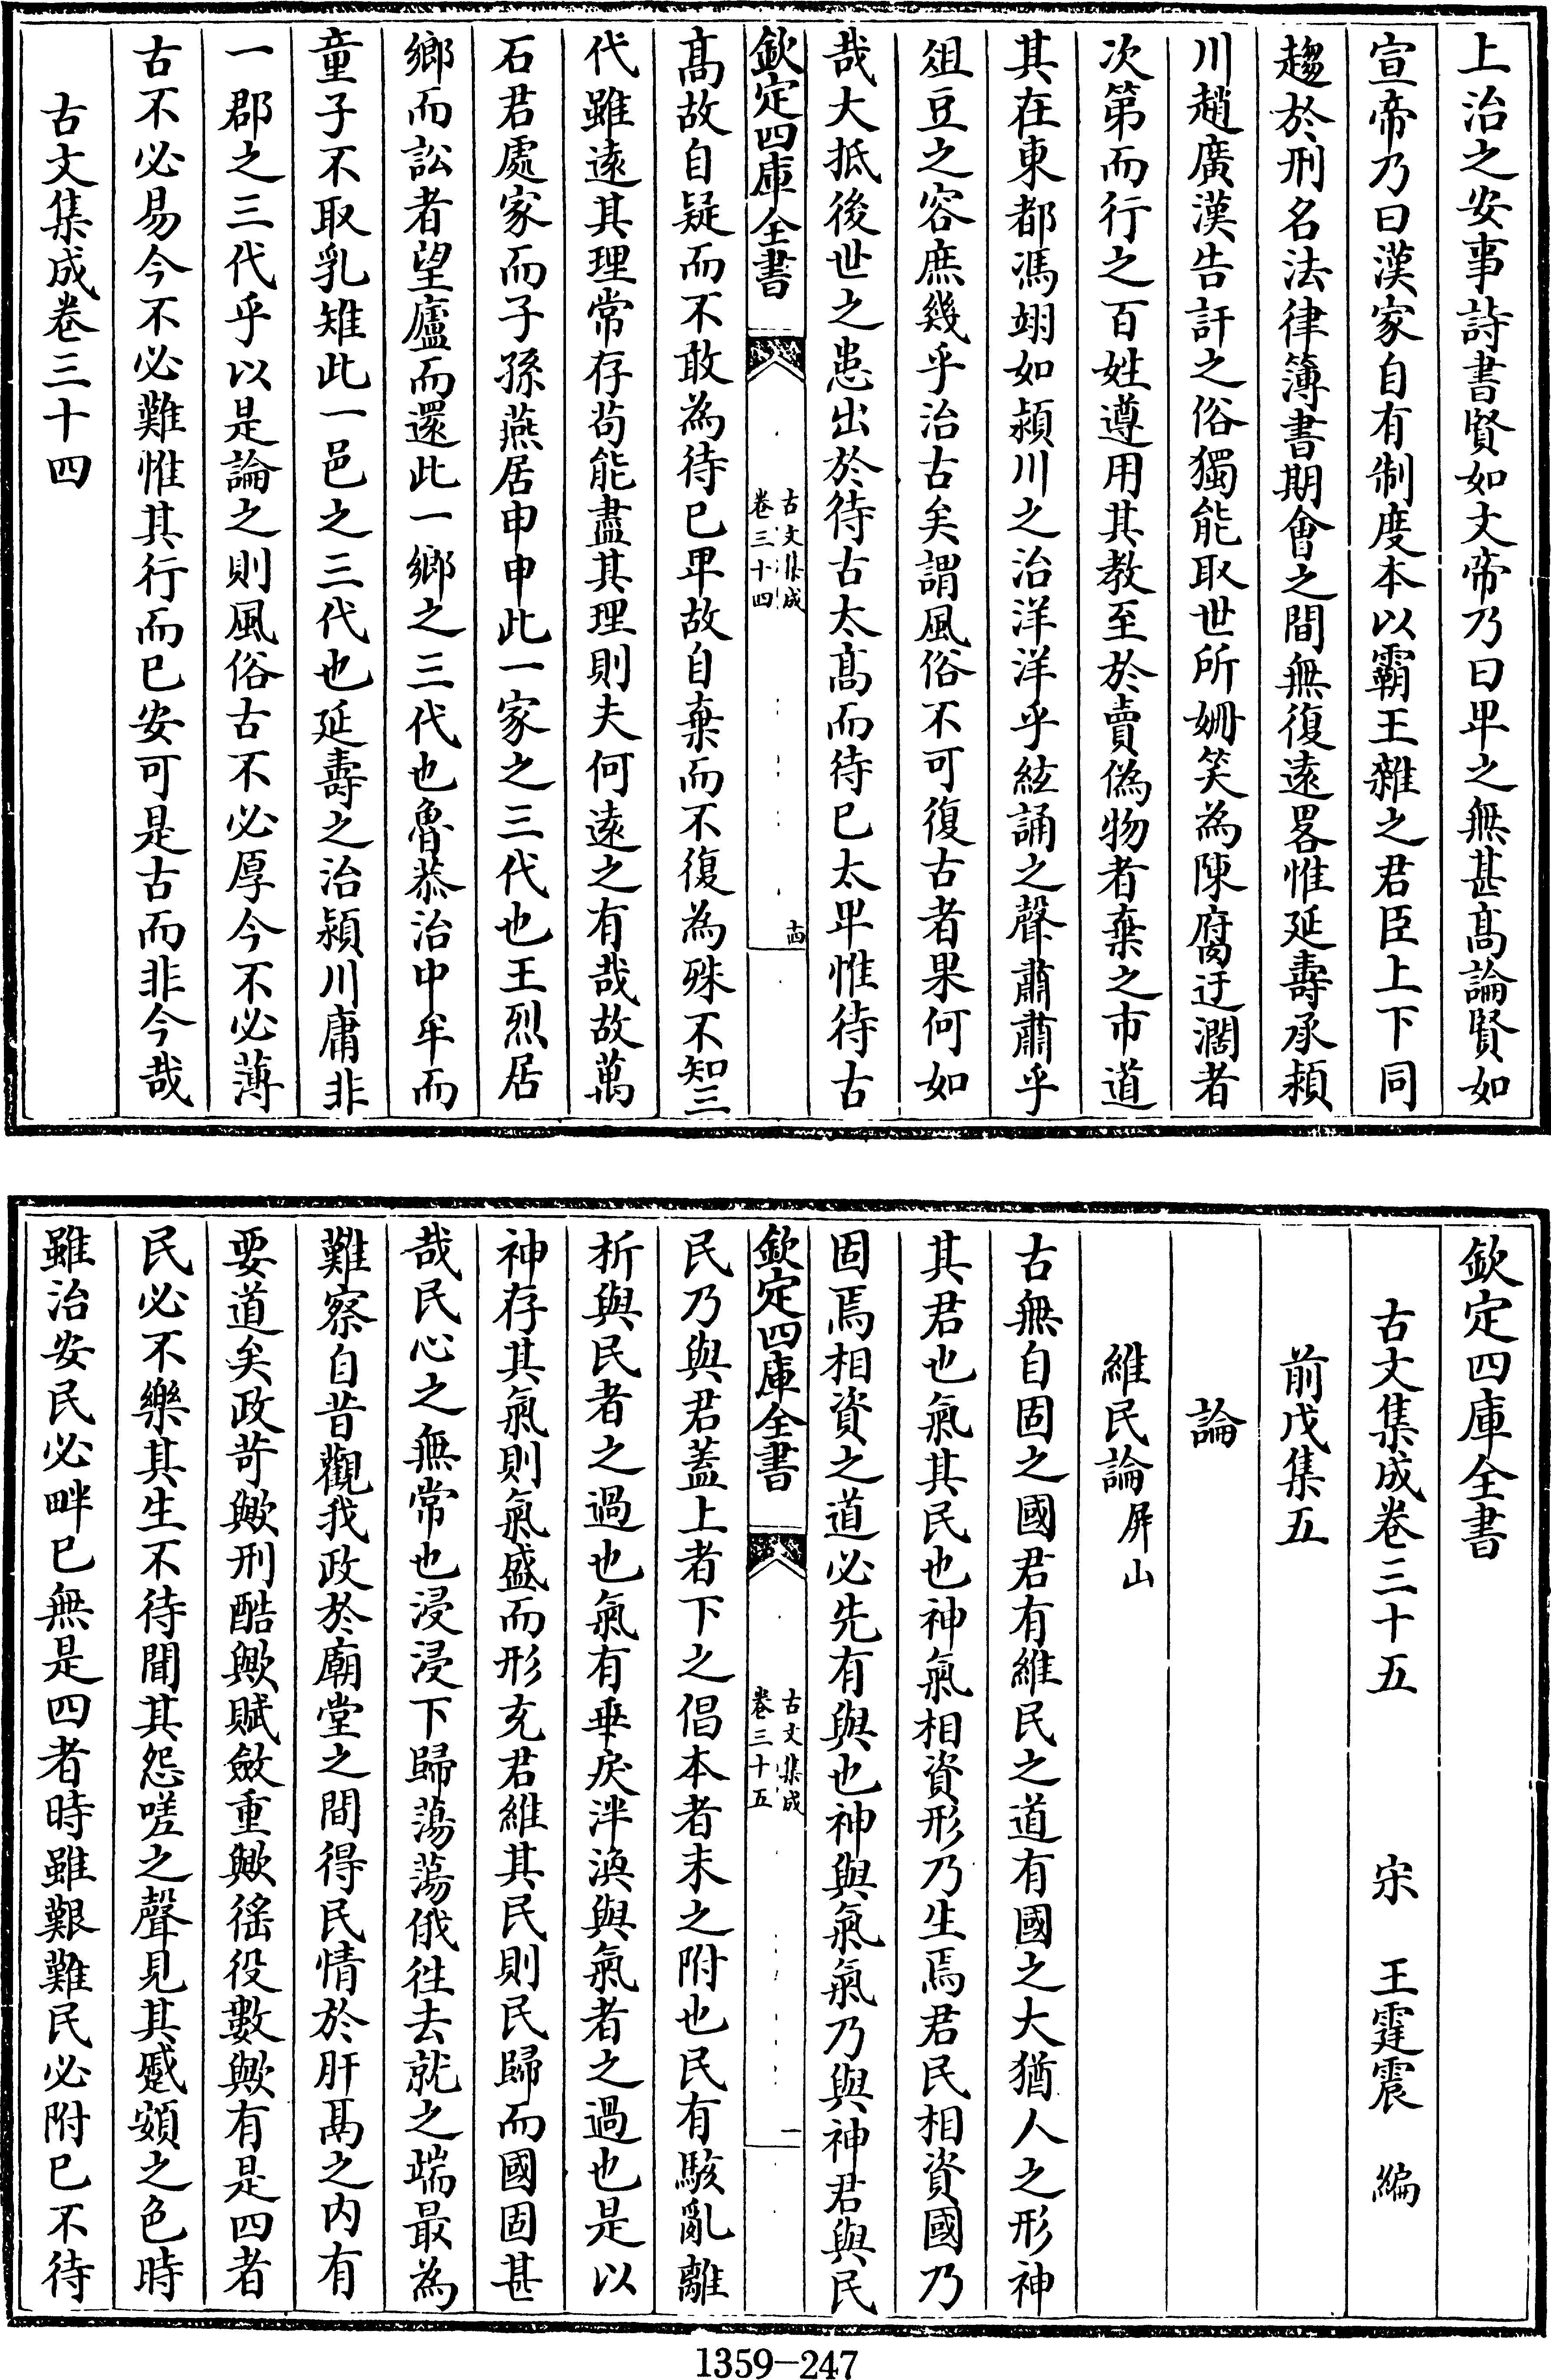 上治之安事詩書賢如文帝乃曰卑之無甚髙論賢如
宣帝乃曰漢家自有制度本以霸王雜之君臣上下同
趨於刑名法律簿書期會之間無復逺畧惟延壽承頴
川趙廣漢告訐之俗獨能取世所姍笑為陳腐迂濶者
次第而行之百姓遵用其教至於賣偽物者棄之市道
其在東都馮翊如潁川之治洋洋乎絃誦之聲肅肅乎
俎豆之容庶幾乎治古矣謂風俗不可復古者果何如
哉大抵後世之患出於待古太髙而待已太卑惟待古
欽定四庫全書
古文集成
卷三十四
十四
髙故自疑而不敢為待已卑故自棄而不復為殊不知三
代雖逺其理常存茍能盡其理則夫何逺之有哉故萬
石君處家而子孫燕居申申此一家之三代也王烈居
鄉而訟者望廬而還此一鄉之三代也魯恭治中牟而
童子不取乳雉此一邑之三代也延壽之治潁川庸非
一郡之三代乎以是論之則風俗古不必厚今不必薄
古不必易今不必難惟其行而已安可是古而非今哉
古文集成卷三十四
欽定四庫全書
古文集成卷三十五 宋 王霆震 編
前戊集五
論
維民論 屏山
古無自固之國君有維民之道有國之大猶人之形神
其君也氣其民也神氣相資形乃生焉君民相資國乃
固焉相資之道必先有與也神與氣氣乃與神君與民
欽定四庫全書
古文集成
卷三十五
一
民乃與君蓋上者下之倡本者末之附也民有駭亂離
析與民者之過也氣有乖戾泮渙與氣者之過也是以
神存其氣則氣盛而形充君維其民則民歸而國固甚
哉民心之無常也浸浸下歸蕩蕩俄徃去就之端最為
難察自昔觀我政於廟堂之間得民情於肝鬲之内有
要道矣政苛歟刑酷歟賦斂重歟徭役數歟有是四者
民必不樂其生不待聞其怨嗟之聲見其蹙頞之色時
雖治安民必畔已無是四者時雖艱難民必附已不待
1359—247